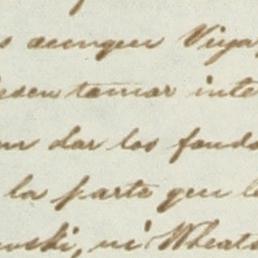 s aunque Viya
esen tomar inte
m dar los fondo
la parte que l
wski, ni Wheats